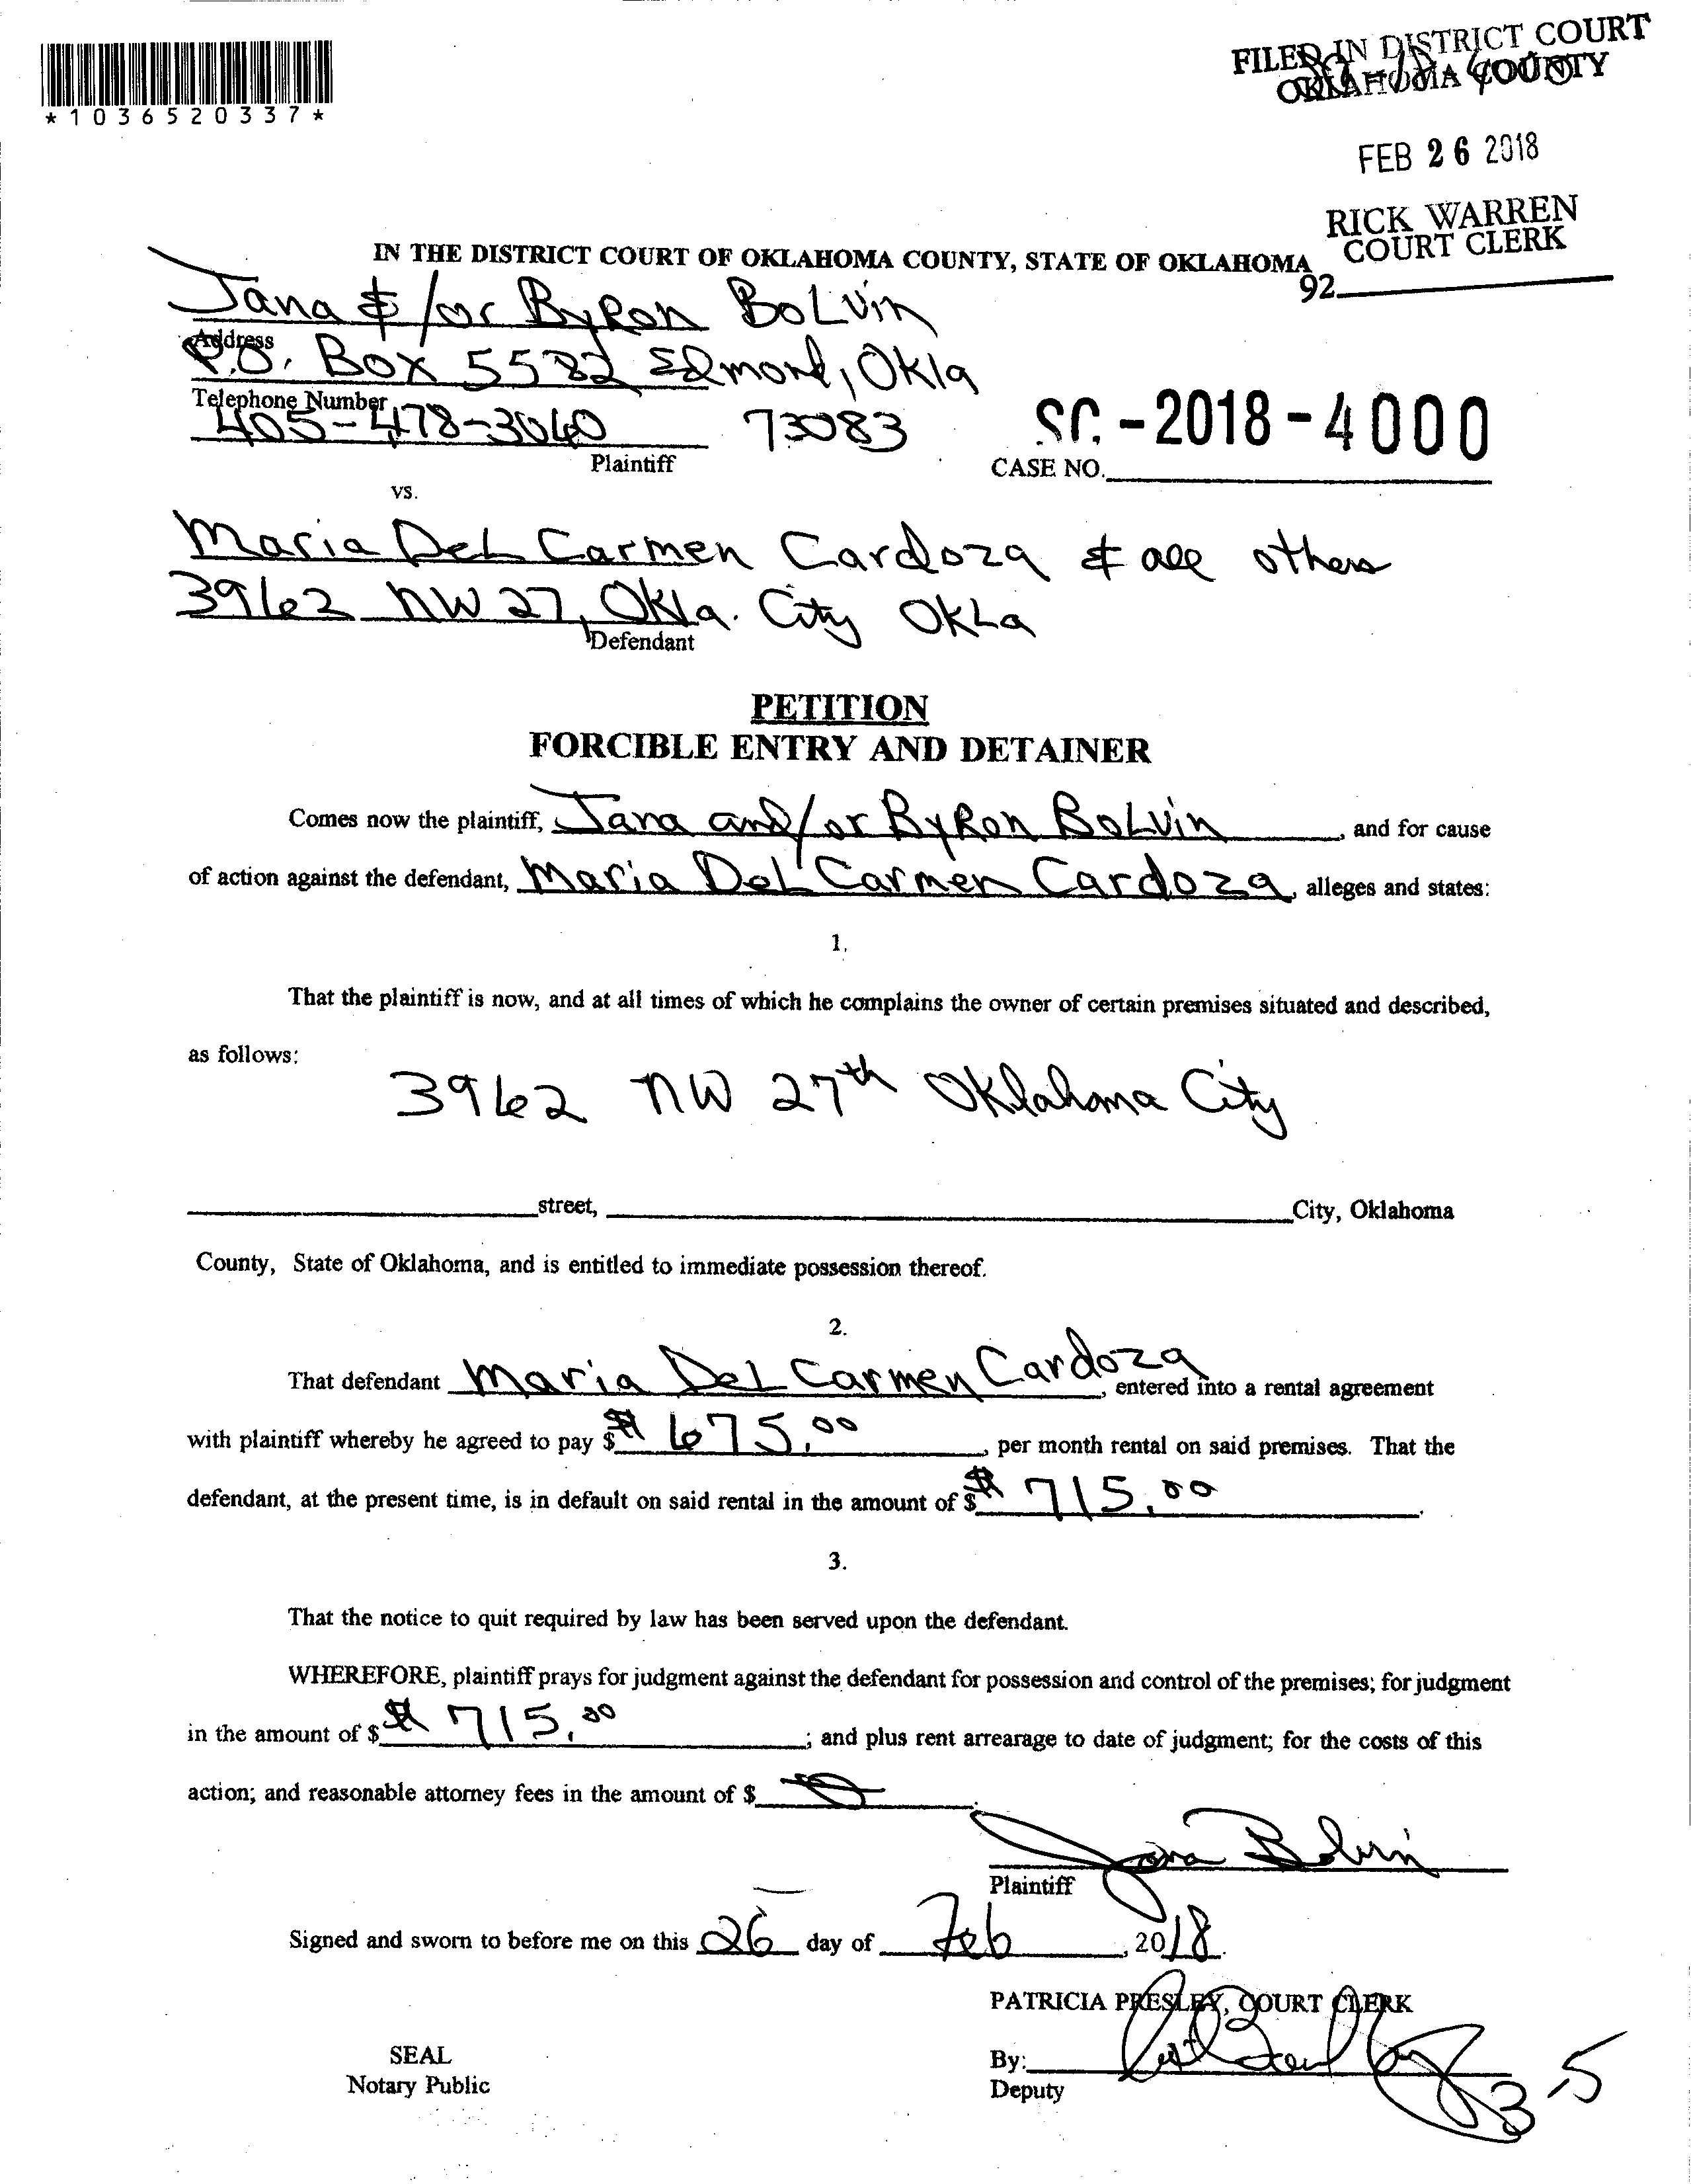 *1036520337*
FILED IN DISTRICT COURT
OKLAHOMA COUNTY
FEB 26 2018
RICK WARREN
COURT CLERK
IN THE DISTRICT COURT OF OKLAHOMA COUNTY, STATE OF OKLAHOMA
92
Jana & /or Byron Bolvin
Address
P.O. Box 5582 Edmond, Okla
Telephone Number
405-478-3040 73083
Plaintiff
SC-2018-4000
CASE NO.
vs.
Maria Del Carmen Cardoza & all others
3962 NW 27, Okla. City Okla
Defendant
PETITION
FORCIBLE ENTRY AND DETAINER
Comes now the plaintiff, Jana and/or Byron Bolvin, and for cause
of action against the defendant, Maria Del Carmen Cardoza, alleges and states:
1.
That the plaintiff is now, and at all times of which he complains the owner of certain premises situated and described,
as follows:
3962 NW 27th Oklahoma City
street, City, Oklahoma
County, State of Oklahoma, and is entitled to immediate possession thereof.
2.
That defendant Maria Del Carmen Cardoza, entered into a rental agreement
with plaintiff whereby he agreed to pay $ $ 675.00, per month rental on said premises. That the
defendant, at the present time, is in default on said rental in the amount of $ $ 715.00.
3.
That the notice to quit required by law has been served upon the defendant.
WHEREFORE, plaintiff prays for judgment against the defendant for possession and control of the premises; for judgment
in the amount of $ $ 715.00; and plus rent arrearage to date of judgment; for the costs of this
action; and reasonable attorney fees in the amount of $ 0.
Jana Bolvin
Plaintiff
Signed and sworn to before me on this 26 day of Feb, 2018.
PATRICIA PRESLEY, COURT CLERK
SEAL
Notary Public
By:
Deputy
3-5